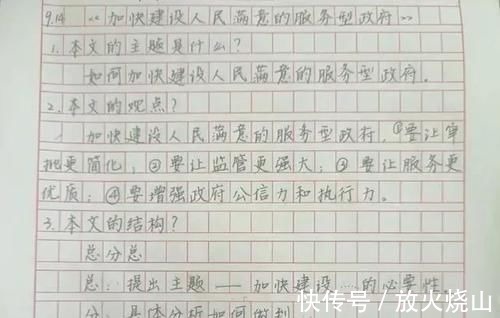 9.14 《加快建设人民满意的服务型政府》
1. 本文的主题是什么？
如何加快建设人民满意的服务型政府。
2. 本文的观点？
加快建设人民满意的服务型政府，①要让审
批更简化；②要让监管更强大；③要让服务更
优质；④要增强政府公信力和执行力。
3. 本文的结构？
总分总
总：提出主题——加快建设……的必要性。
分：具体分析如何做到
快传号 / 放火烧山